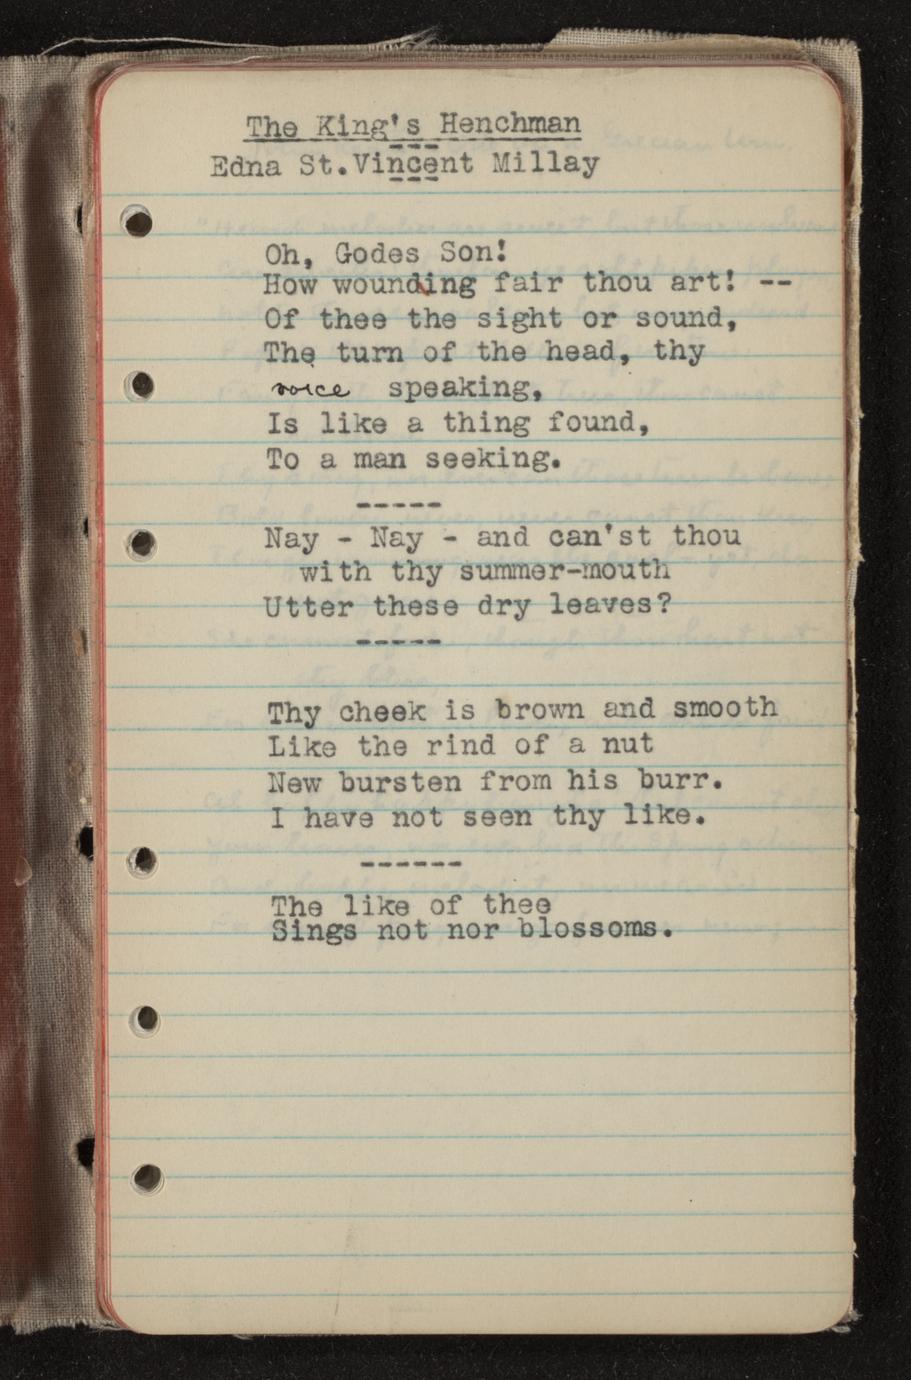 The King's Henchman
---
Edna St.Vincent Millay
---
Oh, Godes Son!
How wounding fair thou art! --
Of thee the sight or sound,
The turn of the head, thy
voice speaking,
Is like a thing found,
To a man seeking.
-----
Nay - Nay - and can'st thou
with thy summer-mouth
Utter these dry leaves?
-----
Thy cheek is brown and smooth
Like the rind of a nut
New bursten from his burr.
I have not seen thy like.
------
The like of thee
Sings not nor blossoms.